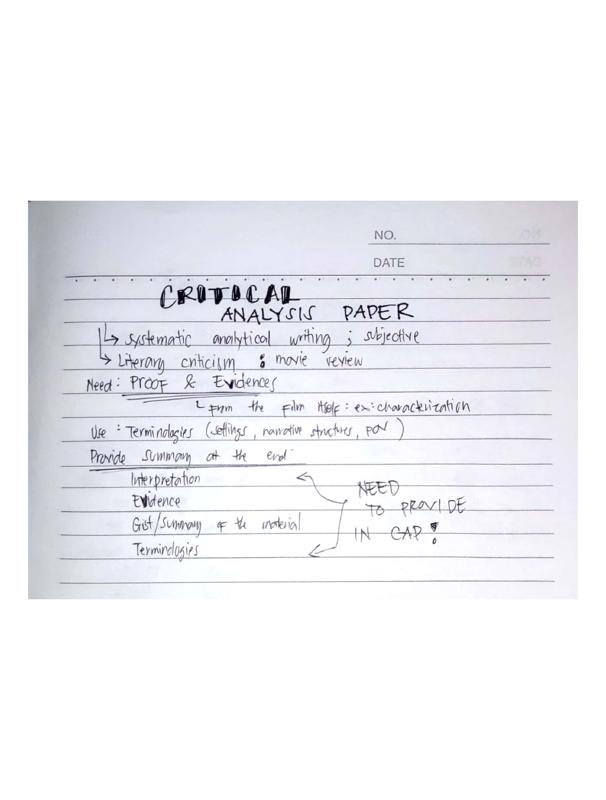 NO.
DATE
CRITICAL
ANALYSIS PAPER
↳ systematic analytical writing ; subjective
↳ Literary criticism : movie review
Need : PROOF & Evidences
↳ from the film itself : ex: characterization
Use : Terminologies (settings, narrative structures, POV)
Provide summary at the end :
Interpretation
Evidence
Gist/summary of the material
Terminologies
NEED
TO PROVIDE
IN CAP!